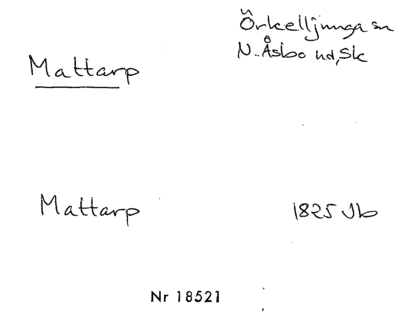 Mattarp
Örkelljunga sn
N. Åsbo hd, Sk
Mattarp 1825 Jb
Nr 18521